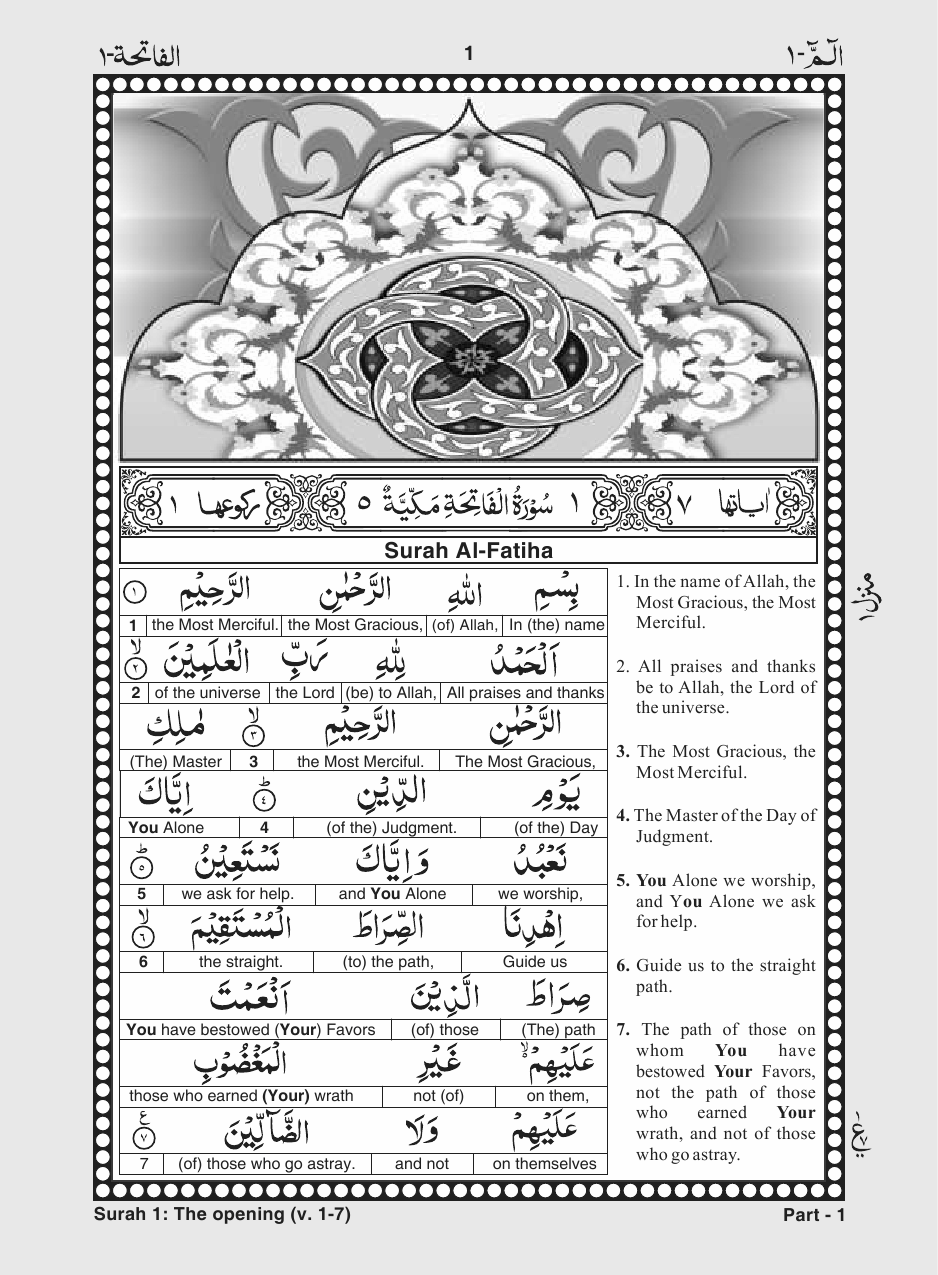 الفاتحة-١
1
الٓمّٓ-١
اٰيَاتُهَا ٧
١ سُوْرَةُ الْفَاتِحَةِ مَكِّيَّةٌ ٥
رُكُوْعُهَا ١
Surah Al-Fatiha
بِسْمِ اللّٰهِ الرَّحْمٰنِ الرَّحِيْمِ ۝١
In (the) name (of) Allah, the Most Gracious, the Most Merciful. 1
اَلْحَمْدُ لِلّٰهِ رَبِّ الْعٰلَمِيْنَ ۝٢ۙ
All praises and thanks (be) to Allah, the Lord of the universe 2
الرَّحْمٰنِ الرَّحِيْمِ ۝٣ۙ مٰلِكِ
The Most Gracious, the Most Merciful. 3 (The) Master
يَوْمِ الدِّيْنِ ۝٤ؕ اِيَّاكَ
(of the) Day (of the) Judgment. 4 You Alone
نَعْبُدُ وَاِيَّاكَ نَسْتَعِيْنُ ۝٥ؕ
we worship, and You Alone we ask for help. 5
اِهْدِنَا الصِّرَاطَ الْمُسْتَقِيْمَ ۝٦ۙ
Guide us (to) the path, the straight. 6
صِرَاطَ الَّذِيْنَ اَنْعَمْتَ
(The) path (of) those You have bestowed (Your) Favors
عَلَيْهِمْ ۙ۬ غَيْرِ الْمَغْضُوْبِ
on them, not (of) those who earned (Your) wrath
عَلَيْهِمْ وَلَا الضَّآلِّيْنَ ۝٧ع
on themselves and not (of) those who go astray. 7
1. In the name of Allah, the
Most Gracious, the Most
Merciful.
2. All praises and thanks
be to Allah, the Lord of
the universe.
3. The Most Gracious, the
Most Merciful.
4. The Master of the Day of
Judgment.
5. You Alone we worship,
and You Alone we ask
for help.
6. Guide us to the straight
path.
7. The path of those on
whom You have
bestowed Your Favors,
not the path of those
who earned Your
wrath, and not of those
who go astray.
منزل ١
Surah 1: The opening (v. 1-7)
Part - 1